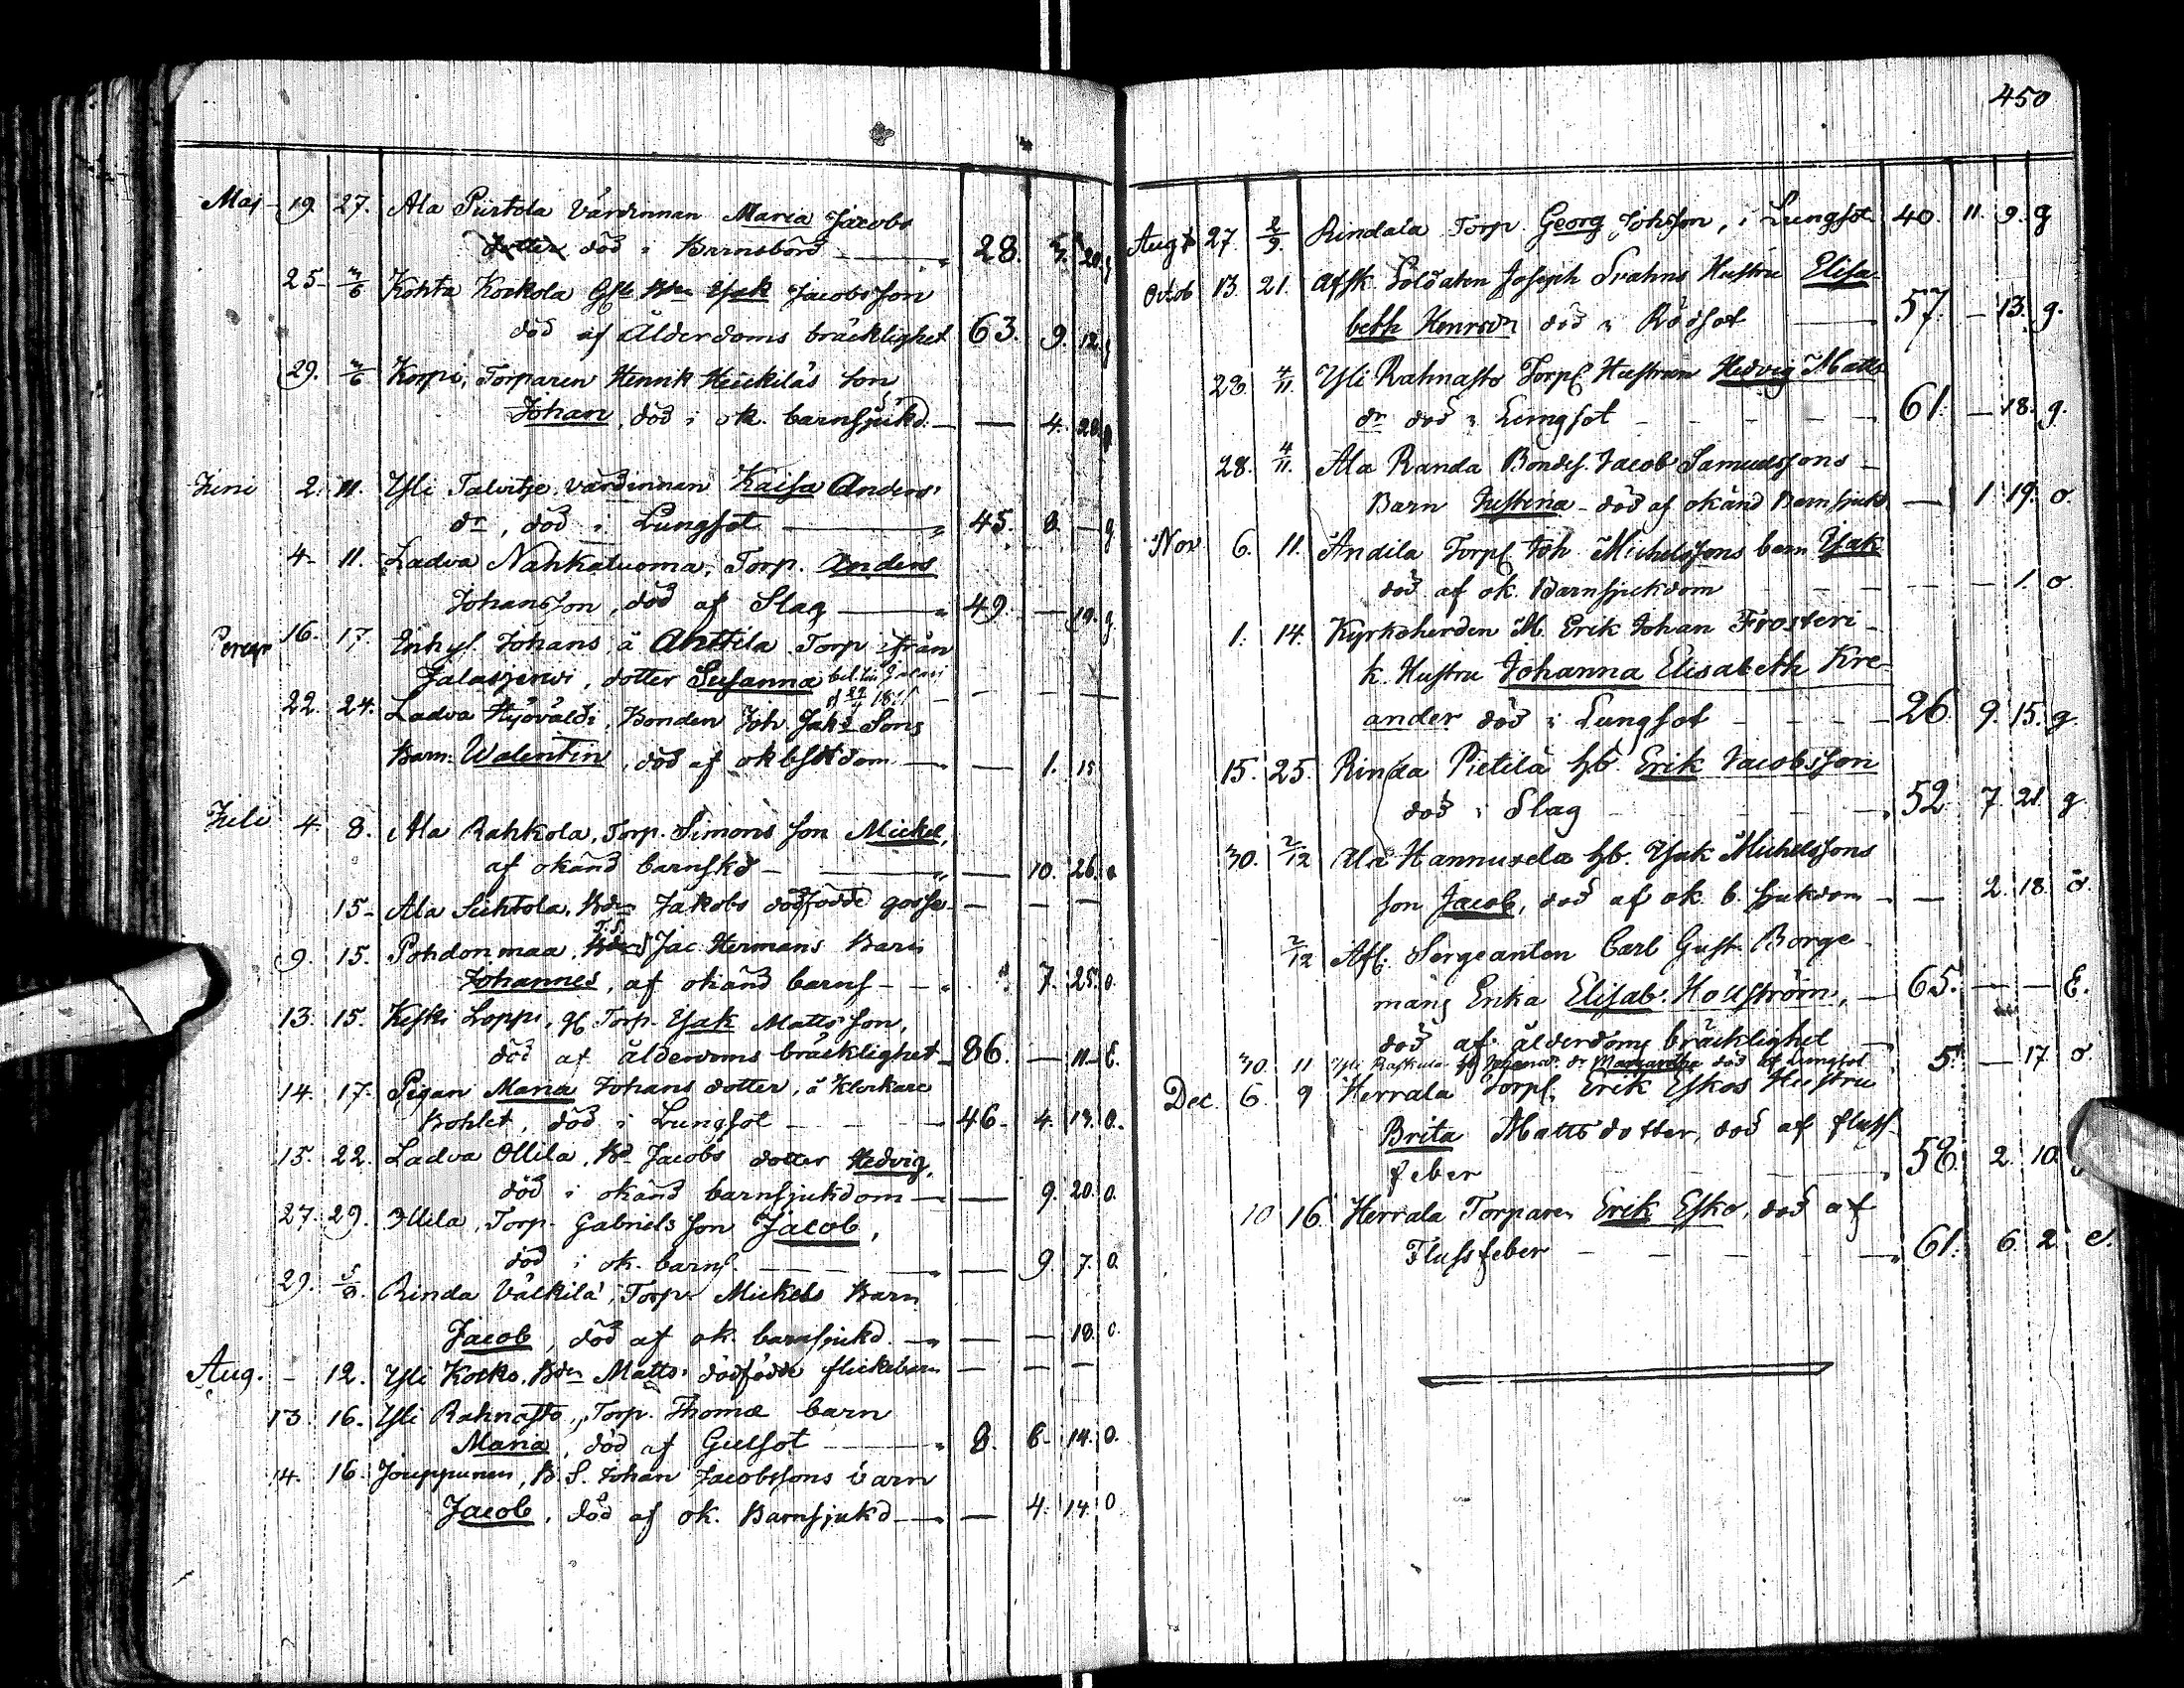 Maj 19. 27. Ala Piirtola Värdinnan Maria Jacobs
dotter död i Barnsbörd 28. 20.
25. Kohta Kockola Jacobsson
död af Ålderdoms bräcklighet 63. 9. 12.
29. Korpi, Torparen Henrik Heickiläs Son
Johan, död i ok. barnsjukd. — 4. 28.
Juni 2. 11. Yli Talvitje, värdinnan Kaisa Anders
dr, död i Lungsot 45. 8. — g
4. 11. Ladva Nahkaluoma, Torp. Anders
Johansson, död af Slag 49. — 19. g.
16. 17. Inhys. Johans, å Anttila Torp från
Jalasjerwi, dotter Susanna
22. 24. Ladva Hyövälti, Bonden Joh. Jaks Sons
Barn Walentin, död af ok bsjkdom — 1. 15
Juli 4. 8. Ala Rahkola, Torp. Simons Son Mickel,
af okänd barnskd — 10. 26.
15. Ala Suhtola, Bdn Jakobs dödfödde gosse — — —
9. 15. Pohdonmaa, Jac. Hermans Barn
Johannes, af okänd barns 7. 25. o.
13. 15. Keski Loppi, Torp. Isak Matts Son,
död af ålderdoms bräcklighet 86. — 11 E
14. 17. Pigan Maria Johans dotter, å Klockare
Bohlet, död i Lungsot 46. 4. 13. o.
15. 22. Ladva Ollila, Bd Jacobs dotter Hedvig,
död i okänd barnsjukdom — 9. 20. o.
27. 29. Ollila, Torp. Gabriels Son Jacob,
död i ok. barns. — 9. 7. o.
29. 5/8. Rinda Välkilä, Torp. Mickels Barn
Jacob, död af ok. barnsjukd. — — 18. o.
Aug. — 12. Yli Kocko, Bdn Matts dödfödde flickebarn — — —
13. 16. Yli Rahnasto, Torp. Thomæ barn
Maria, död af Gulsot 8. 6. 14. o.
14. 16. Jouppunen, B. S. Johan Jacobssons barn
Jacob, död af ok. Barnsjukd — 4. 14. o
450
Aug 27. 2/9. Rindala Torp. Georg Johsson, i Lungsot 40. 11. 9. g
Octob 13. 21. Afsk. Soldaten Joseph Svahns Hustru Elisa-
beth Henrsdr död i Rödsot 57. — 13. g.
28. 4/11. Yli Rahnasto Torps. Hustrun Hedvig Matts
dr död i Lungsot 61. — 18. g.
28. 4/11. Ala Randa Bondes. Jacob Samuelssons
Barn Justina död af okänd Barnsjukd — 1 19. o.
Nov 6. 11. Andila Torps Joh Michelssons barn Isak
död af ok. Barnsjukdom — — 1. o
1. 14. Kyrkoherden M. Erik Johan Frosteri-
k. Hustru Johanna Elisabeth Kre-
ander död i Lungsot 26. 9. 15. g.
15. 25. Rinda Pietilä hb. Erik Jacobsson
död i Slag 52. 7. 21. g
30. 2/12 Ala Hannuxela hb. Isak Michelssons
son Jacob, död af ok. b. sjukdom — 2. 18. o.
2/12 Afs. Sergeanten Carl Gust. Borge-
mans Enka Elisab. Hollström, 65. — — E.
död af ålderdoms bräcklighet
30. 11 Yli Margaretha död af Lungsot 5. — 17 o
Dec. 6. 9 Herrala Torps. Erik Eskos Hustru
Brita Mattsdotter, död af fluss-
feber 58. 2. 10
10 16. Herrala Torparen Erik Esko, död af
Flussfeber 61. 6. 2. e.